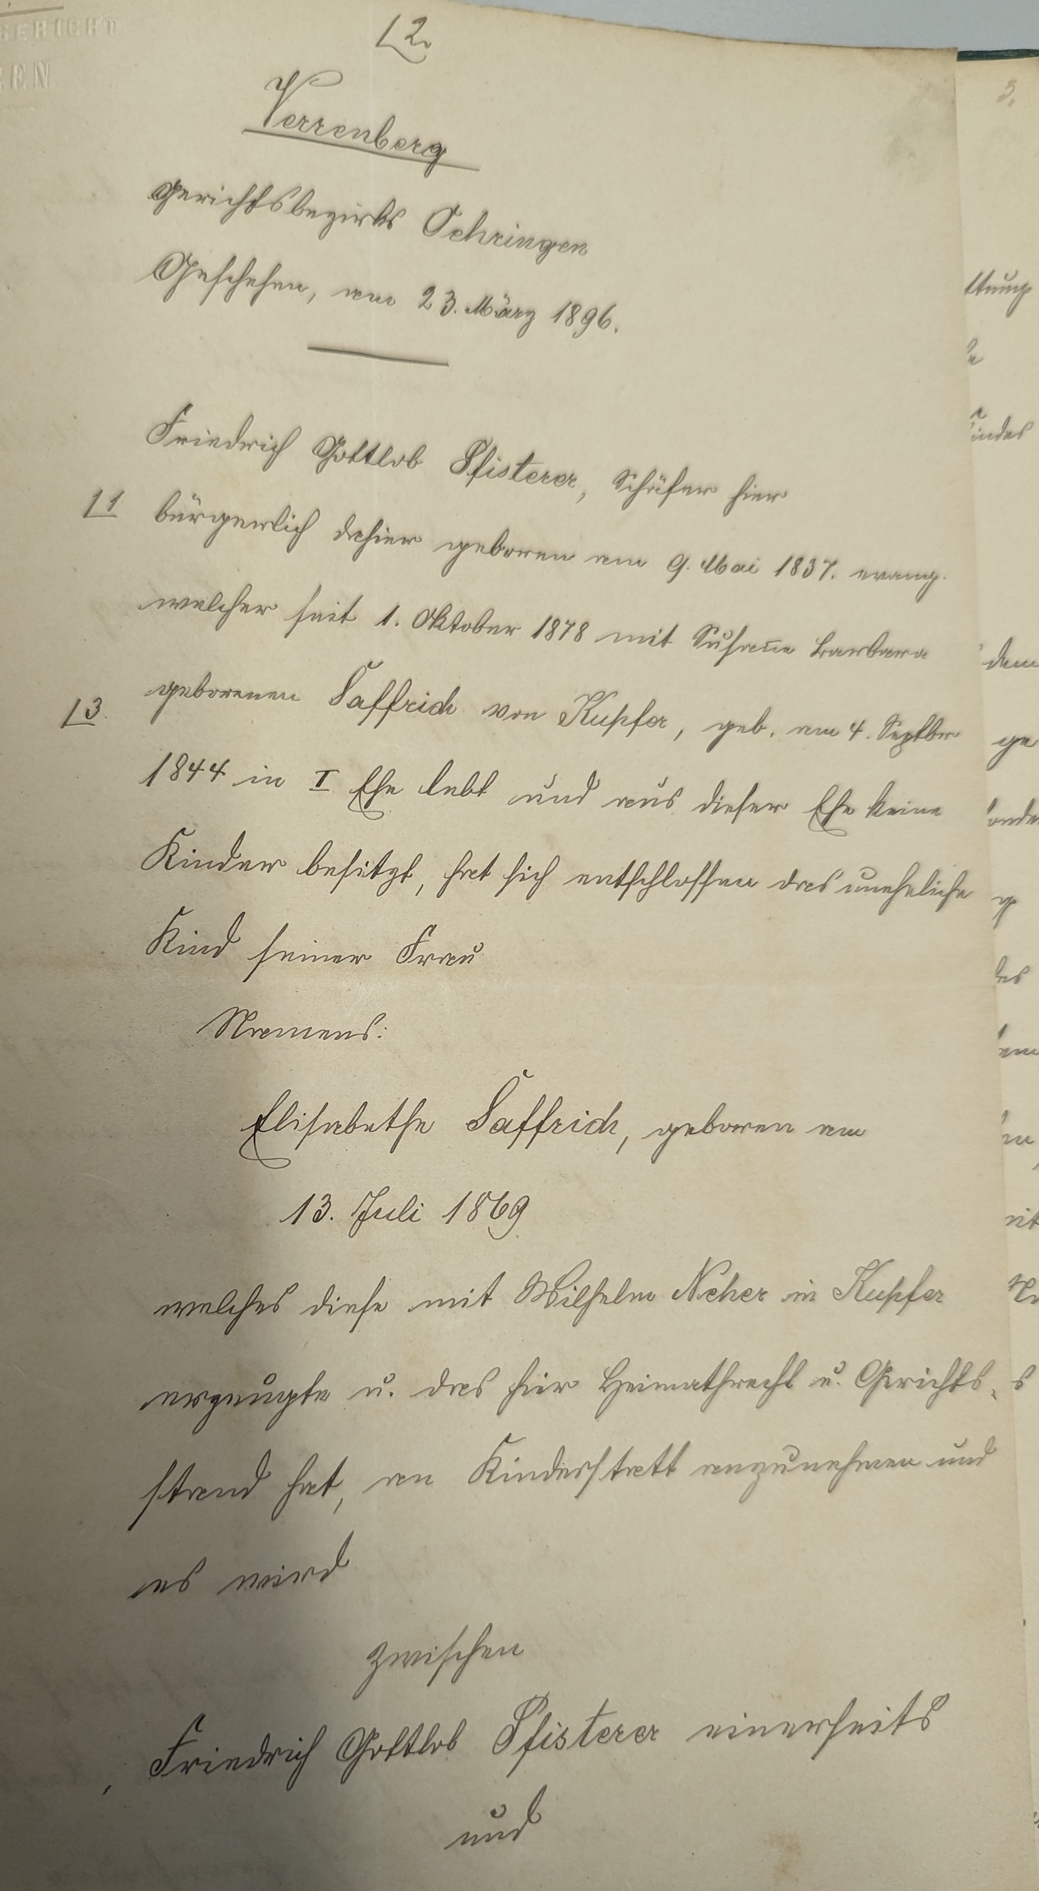 GERICHT
EN
L2.
3.
Verrenberg
Gerichtsbezirks Oehringen
Geschehen, am 23. März 1896.
Friedrich Gottlob Pfisterer, Schäfer hier
L1 bürgerlich dahier geboren am 9. Mai 1837. evang.
welcher seit 1. Oktober 1878 mit Susan̅e Barbara
L3. geborenen Saffrich von Kupfer, geb. am 4. Septbr
1844 in I Ehe lebt und aus dieser Ehe keine
Kinder besitzt, hat sich entschlossen das uneheliche
Kind seiner Frau
Namens:
Elisabethe Saffrich, geboren am
13. Juli 1869
welches diese mit Wilhelm Neher in Kupfer
erzeugte u. das hier Heimathrecht u. Gerichts-
stand hat, an Kindesstatt anzunehmen und
es wird
zwischen
Friedrich Gottlob Pfisterer einerseits
und